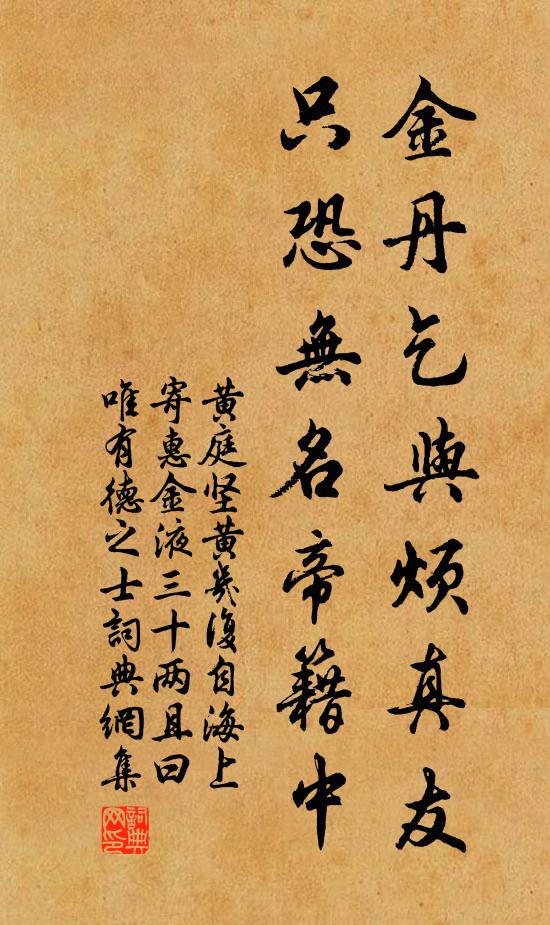 金丹乞與煩真友
只恐無名帝籍中
黄庭坚黄幾復自海上
寄惠金液三十两且曰
唯有德之士詞典網集
詞典网印